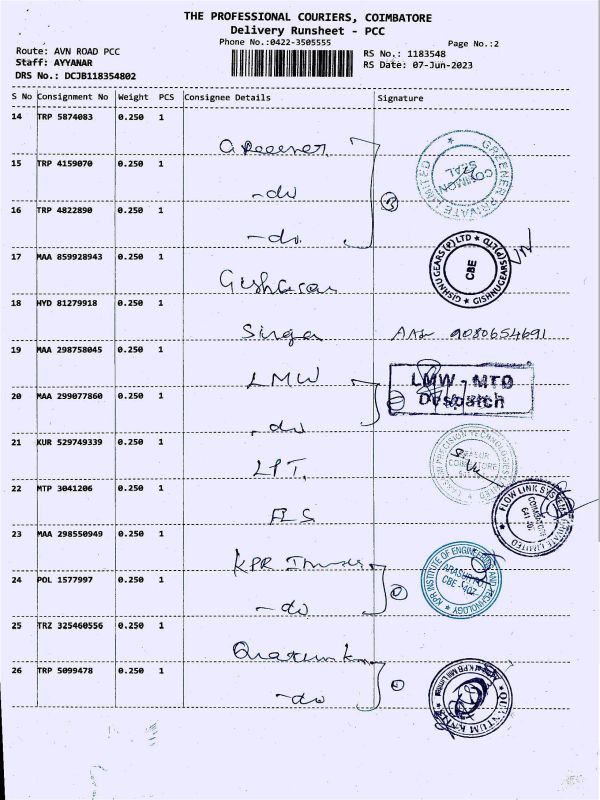 THE PROFESSIONAL COURIERS, COIMBATORE
Delivery Runsheet - PCC
Phone No.:0422-3505555
Page No.:2
Route: AVN ROAD PCC
Staff: AYYANAR
DRS No.: DCJB118354802
RS No.: 1183548
RS Date: 07-Jun-2023
S No Consignment No Weight PCS Consignee Details Signature
14 TRP 5874083 0.250 1
Greener
GREENER PRIVATE LIMITED
COMMON SEAL
15 TRP 4159070 0.250 1
-do
16 TRP 4822890 0.250 1
-do
17 MAA 859928943 0.250 1
GISHNUGEARS(P)LTD ★ GISHNUGEARS(P)LTD ★
CBE
18 HYD 81279918 0.250 1
9080654691
19 MAA 298758045 0.250 1
LMW
LMW - MTD
Despatch
20 MAA 299077860 0.250 1
-do
21 KUR 529749339 0.250 1
LPT.
PRECISION TECHNOLOGIES
COIMBATORE
22 MTP 3041206 0.250 1
FLS
FLOW LINK SYSTEMS PRIVATE LIMITED
COIMBATORE
23 MAA 298550949 0.250 1
KPR
KPR INSTITUTE OF ENGINEERING AND TECHNOLOGY
24 POL 1577997 0.250 1
-do
25 TRZ 325460556 0.250 1
26 TRP 5099478 0.250 1
-do
QUANTUM KNITS